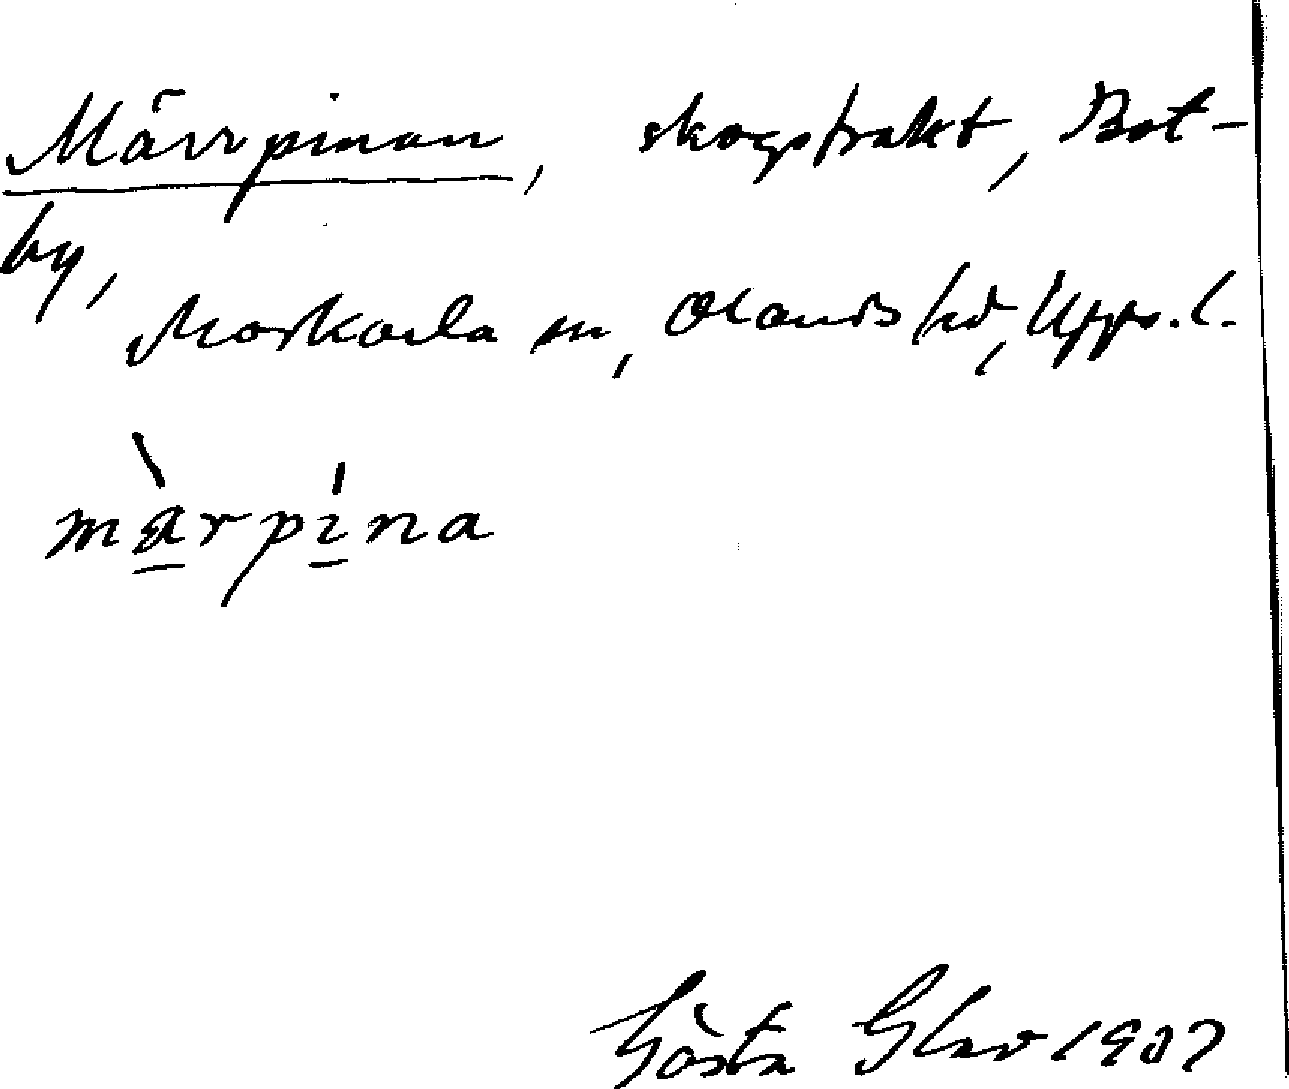 Märrpinan, skogstrakt, Bot-
by,
Morkarla sn, Olands hd, Upps. l.
màrpína
Gösta Glad 1907